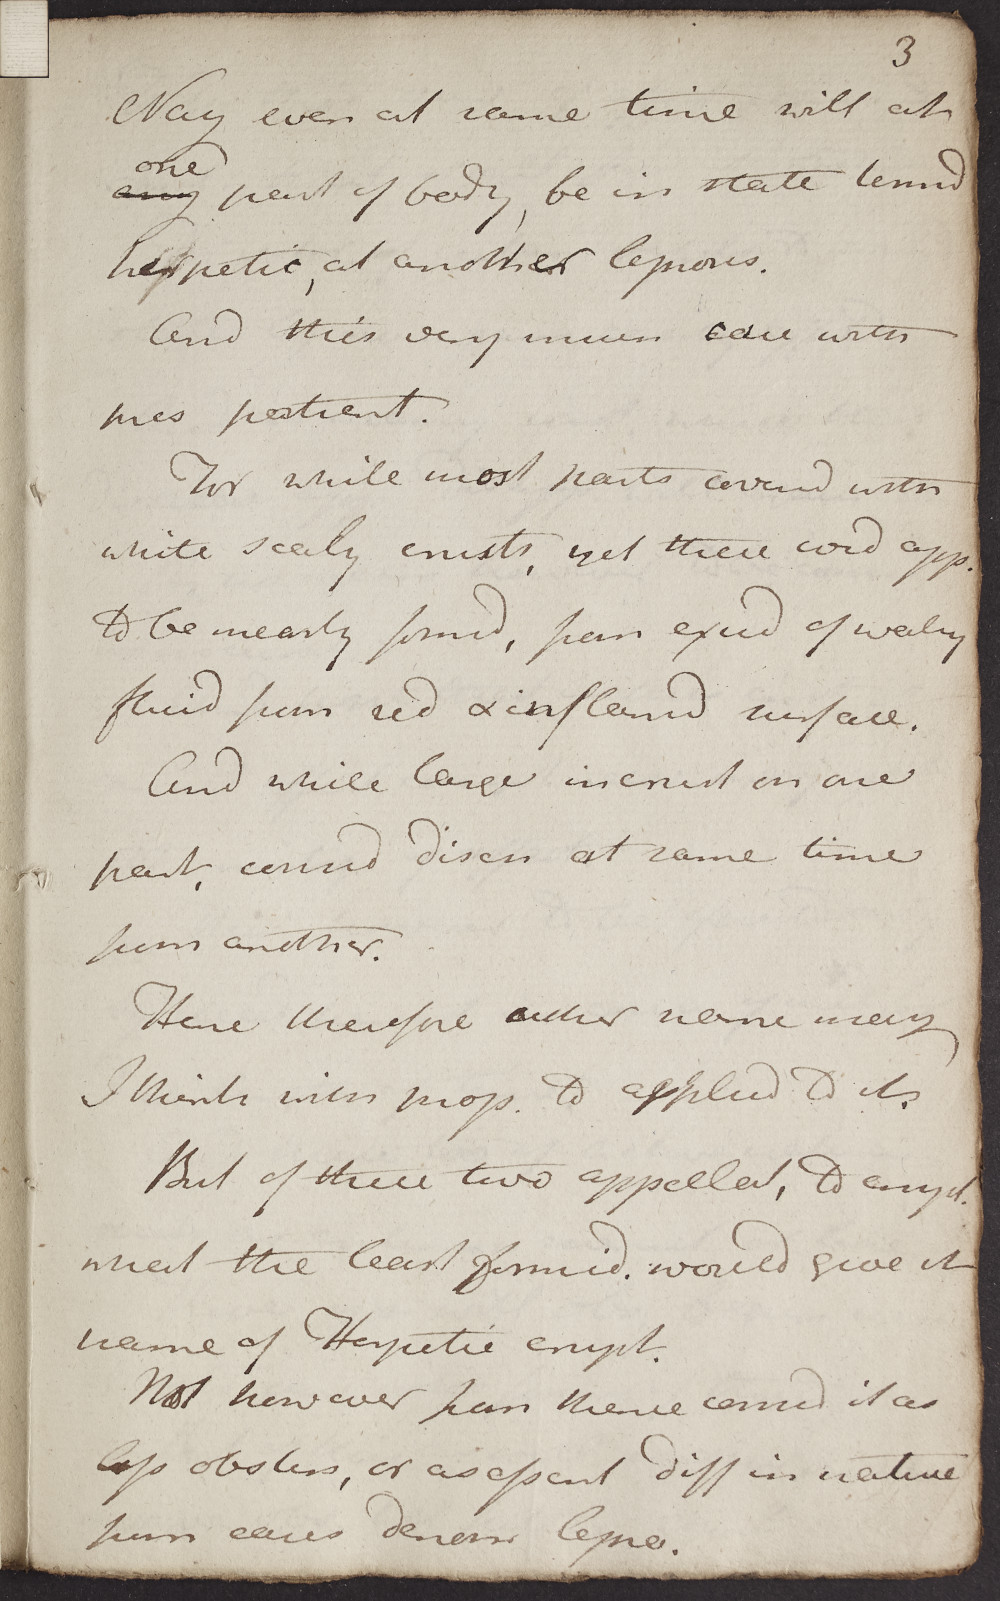 3
Nay even at same time will at
one
any part of body, be in state termd
herpetic, at another leprous.
And this very much case with
pres patient.
For while most parts coverd with
white scaly crusts, yet these coud app.
to be nearly formd, from exud of watry
fluid from red & inflamd surface.
And while large incrust on one
part, coud discn at same time
from another.
Here therefore either name may
I think with prop. to applied to it.
But of these two appellat, to erupt.
what the least formid. would give it
name of Herpetic erupt.
Not however from thence consd it as
less obstin, or as essent diff in nature
from cases denom lepra.